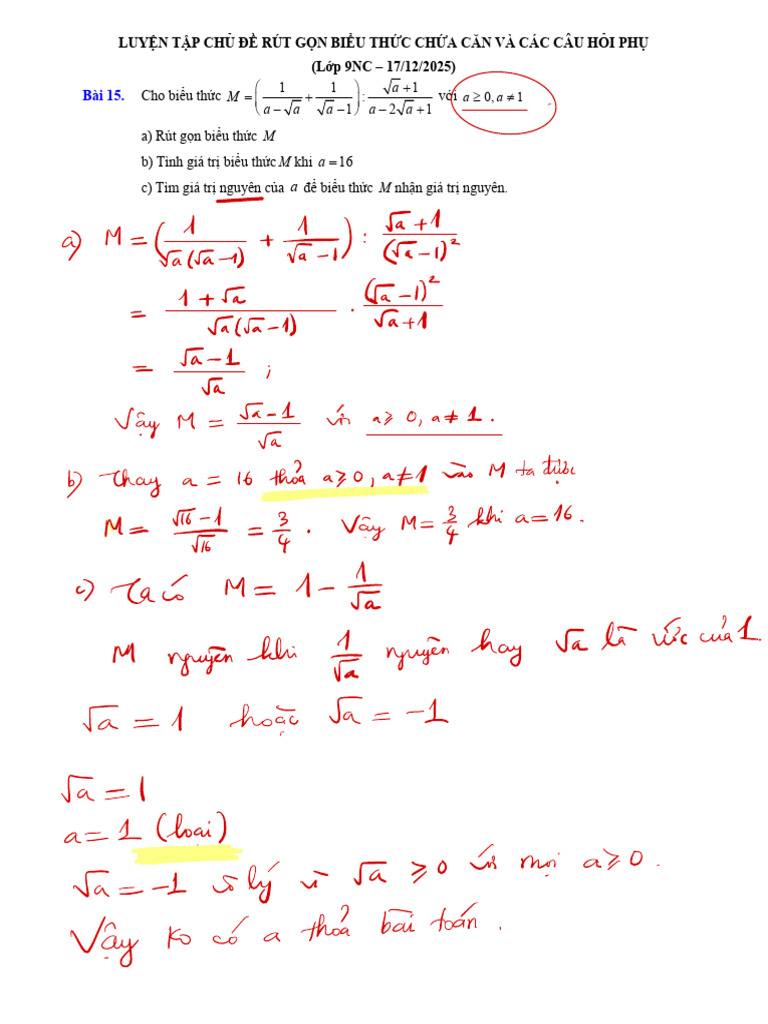 LUYỆN TẬP CHỦ ĐỀ RÚT GỌN BIỂU THỨC CHỨA CĂN VÀ CÁC CÂU HỎI PHỤ
(Lớp 9NC – 17/12/2025)
Bài 15. Cho biểu thức M = (1/(a−√a) + 1/(√a−1)) : (√a+1)/(a−2√a+1) với a ≥ 0, a ≠ 1
a) Rút gọn biểu thức M
b) Tính giá trị biểu thức M khi a = 16
c) Tìm giá trị nguyên của a để biểu thức M nhận giá trị nguyên.
a) M = (1/(√a(√a−1)) + 1/(√a−1)) : (√a+1)/(√a−1)²
= (1+√a)/(√a(√a−1)) · (√a−1)²/(√a+1)
= (√a−1)/√a ;
Vậy M = (√a−1)/√a với a ≥ 0, a ≠ 1.
b) Thay a = 16 thỏa a ≥ 0, a ≠ 1 vào M ta được
M = (√16−1)/√16 = 3/4. Vậy M = 3/4 khi a = 16.
c) Ta có M = 1 − 1/√a
M nguyên khi 1/√a nguyên hay √a là ước của 1.
√a = 1 hoặc √a = −1
√a = 1
a = 1 (loại)
√a = −1 vô lý vì √a ≥ 0 với mọi a ≥ 0.
Vậy ko có a thỏa bài toán.